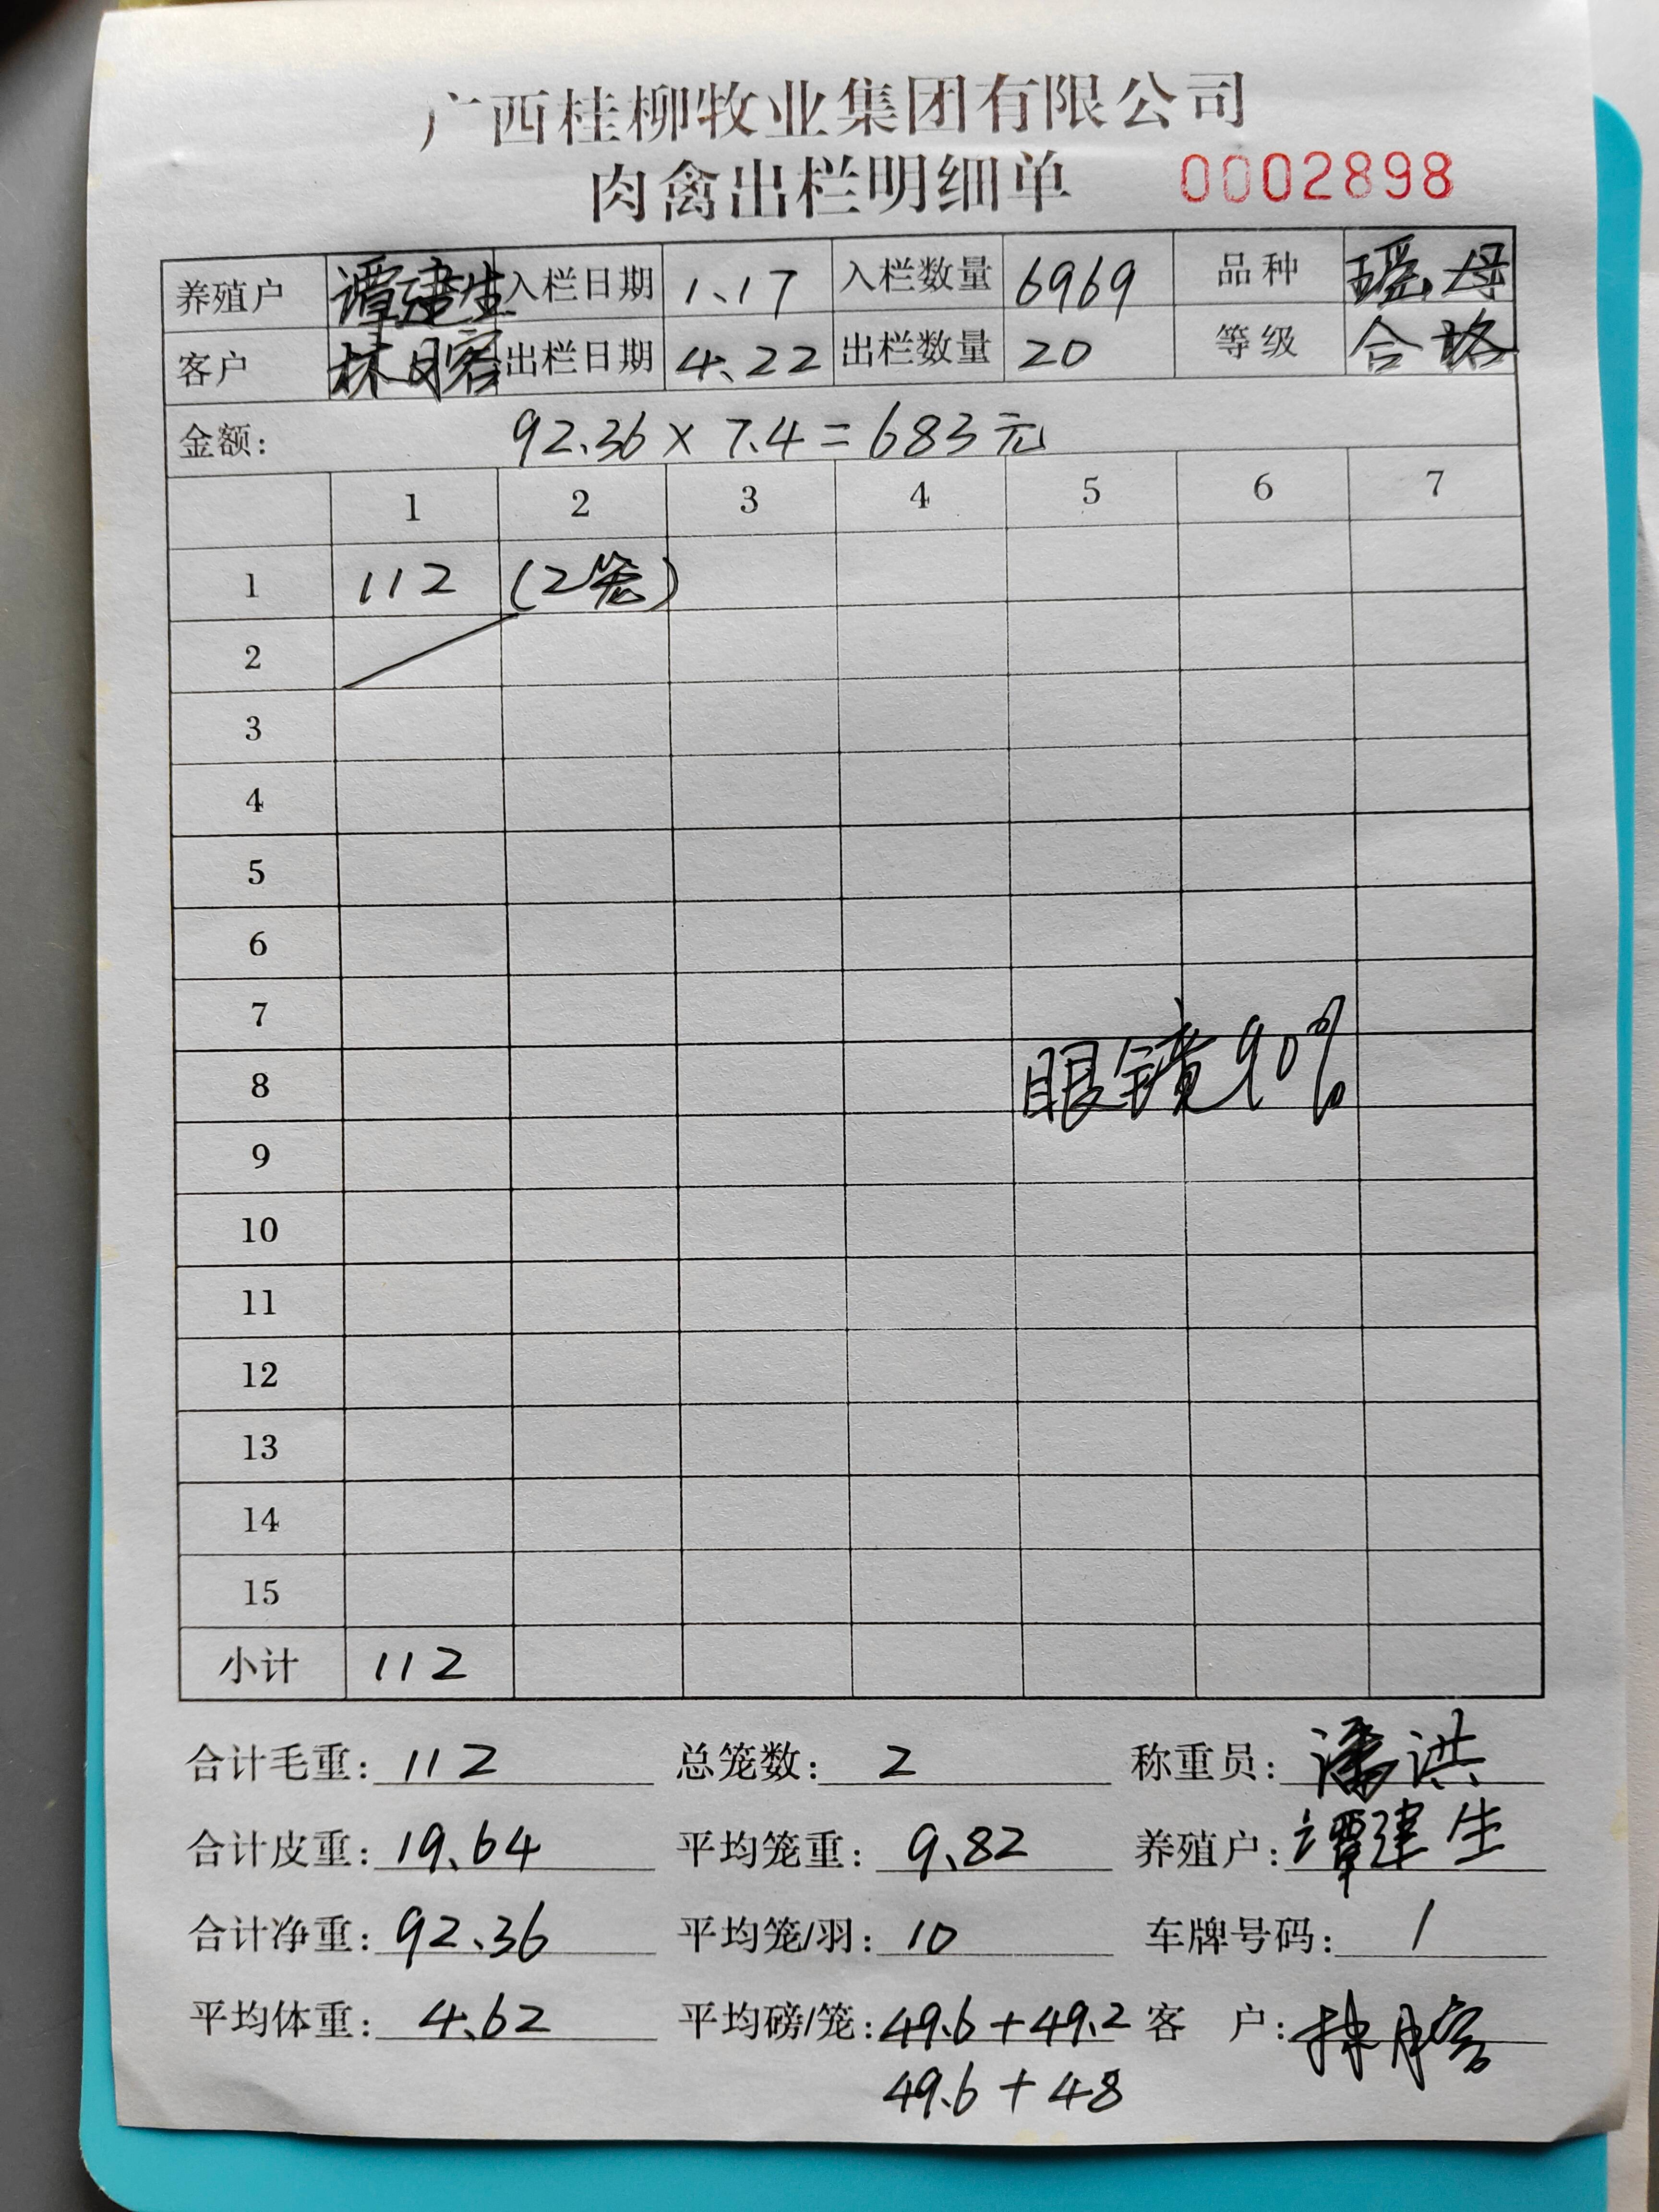 广西桂柳牧业集团有限公司
肉禽出栏明细单 0002898
养殖户 谭建生 入栏日期 1.17 入栏数量 6969 品种 瑶母
客户 出栏日期 4.22 出栏数量 20 等级 合格
金额: 92.36 × 7.4 = 683元
1 2 3 4 5 6 7
1 112 (2笼)
2
3
4
5
6
7
8 眼镜90%
9
10
11
12
13
14
15
小计 112
合计毛重: 112 总笼数: 2 称重员: 潘洪
合计皮重: 19.64 平均笼重: 9.82 养殖户: 谭建生
合计净重: 92.36 平均笼/羽: 10 车牌号码: /
平均体重: 4.62 平均磅/笼: 49.6+49.2 客户:
49.6+48